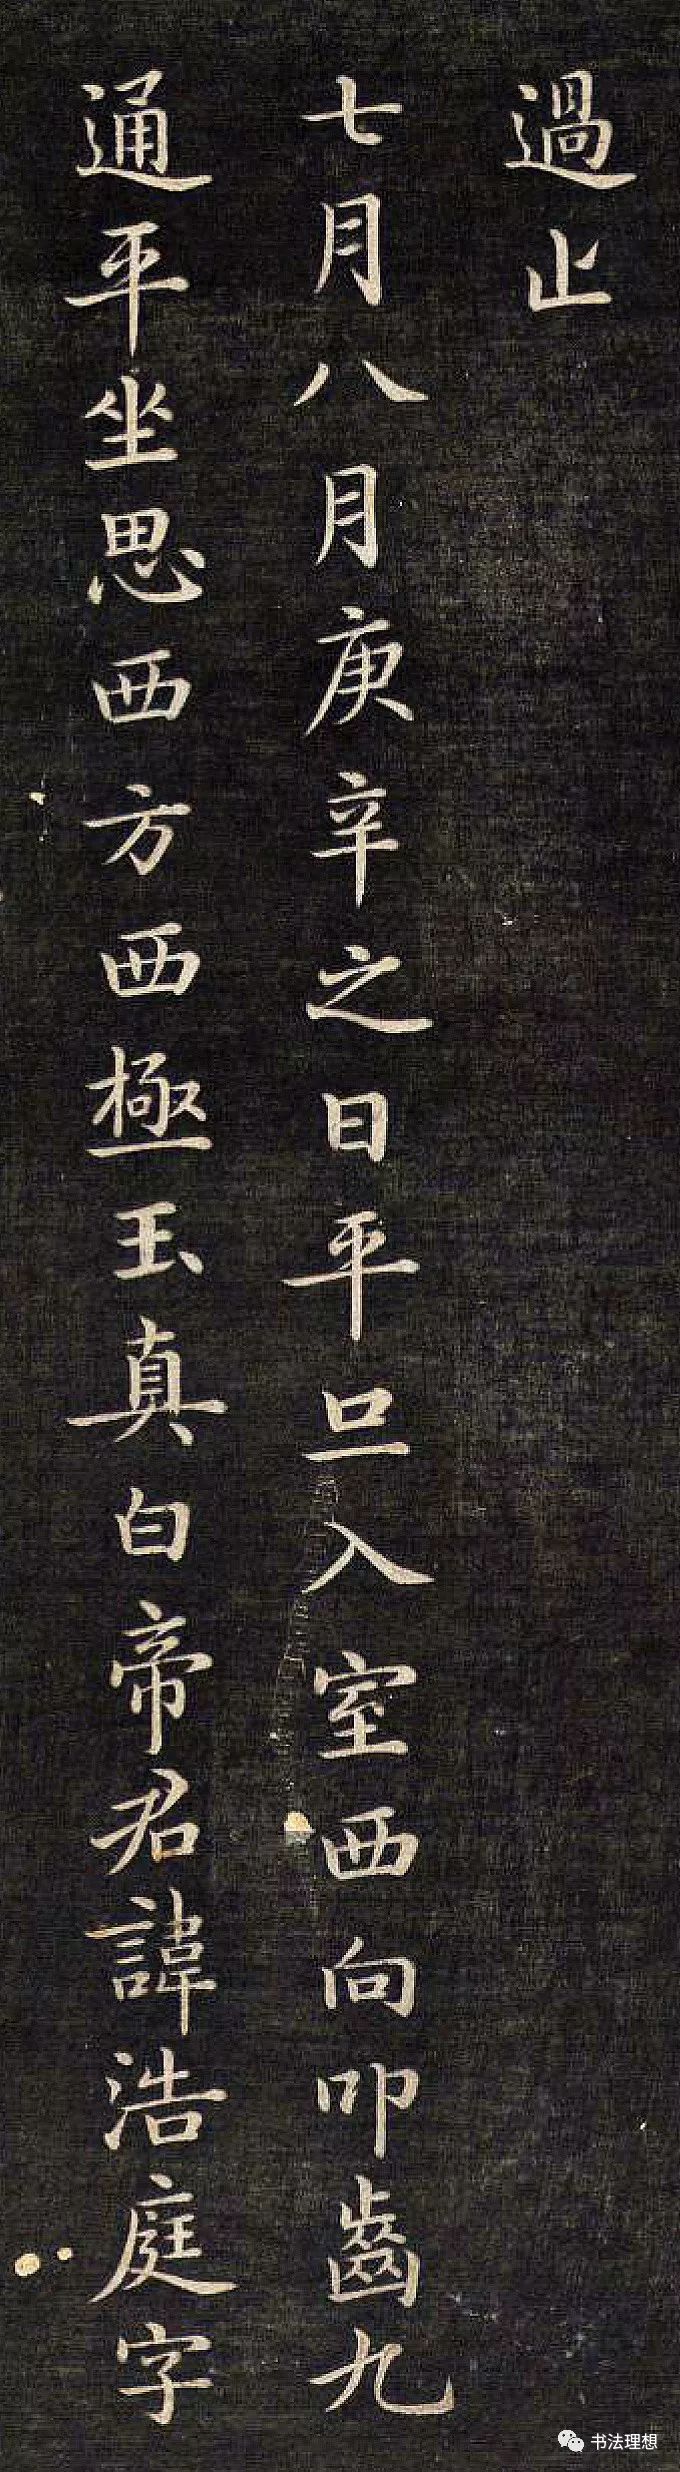 過止
七月八月庚辛之日平旦入室西向叩齒九
通平坐思西方西極玉真白帝君諱浩庭字
书法理想